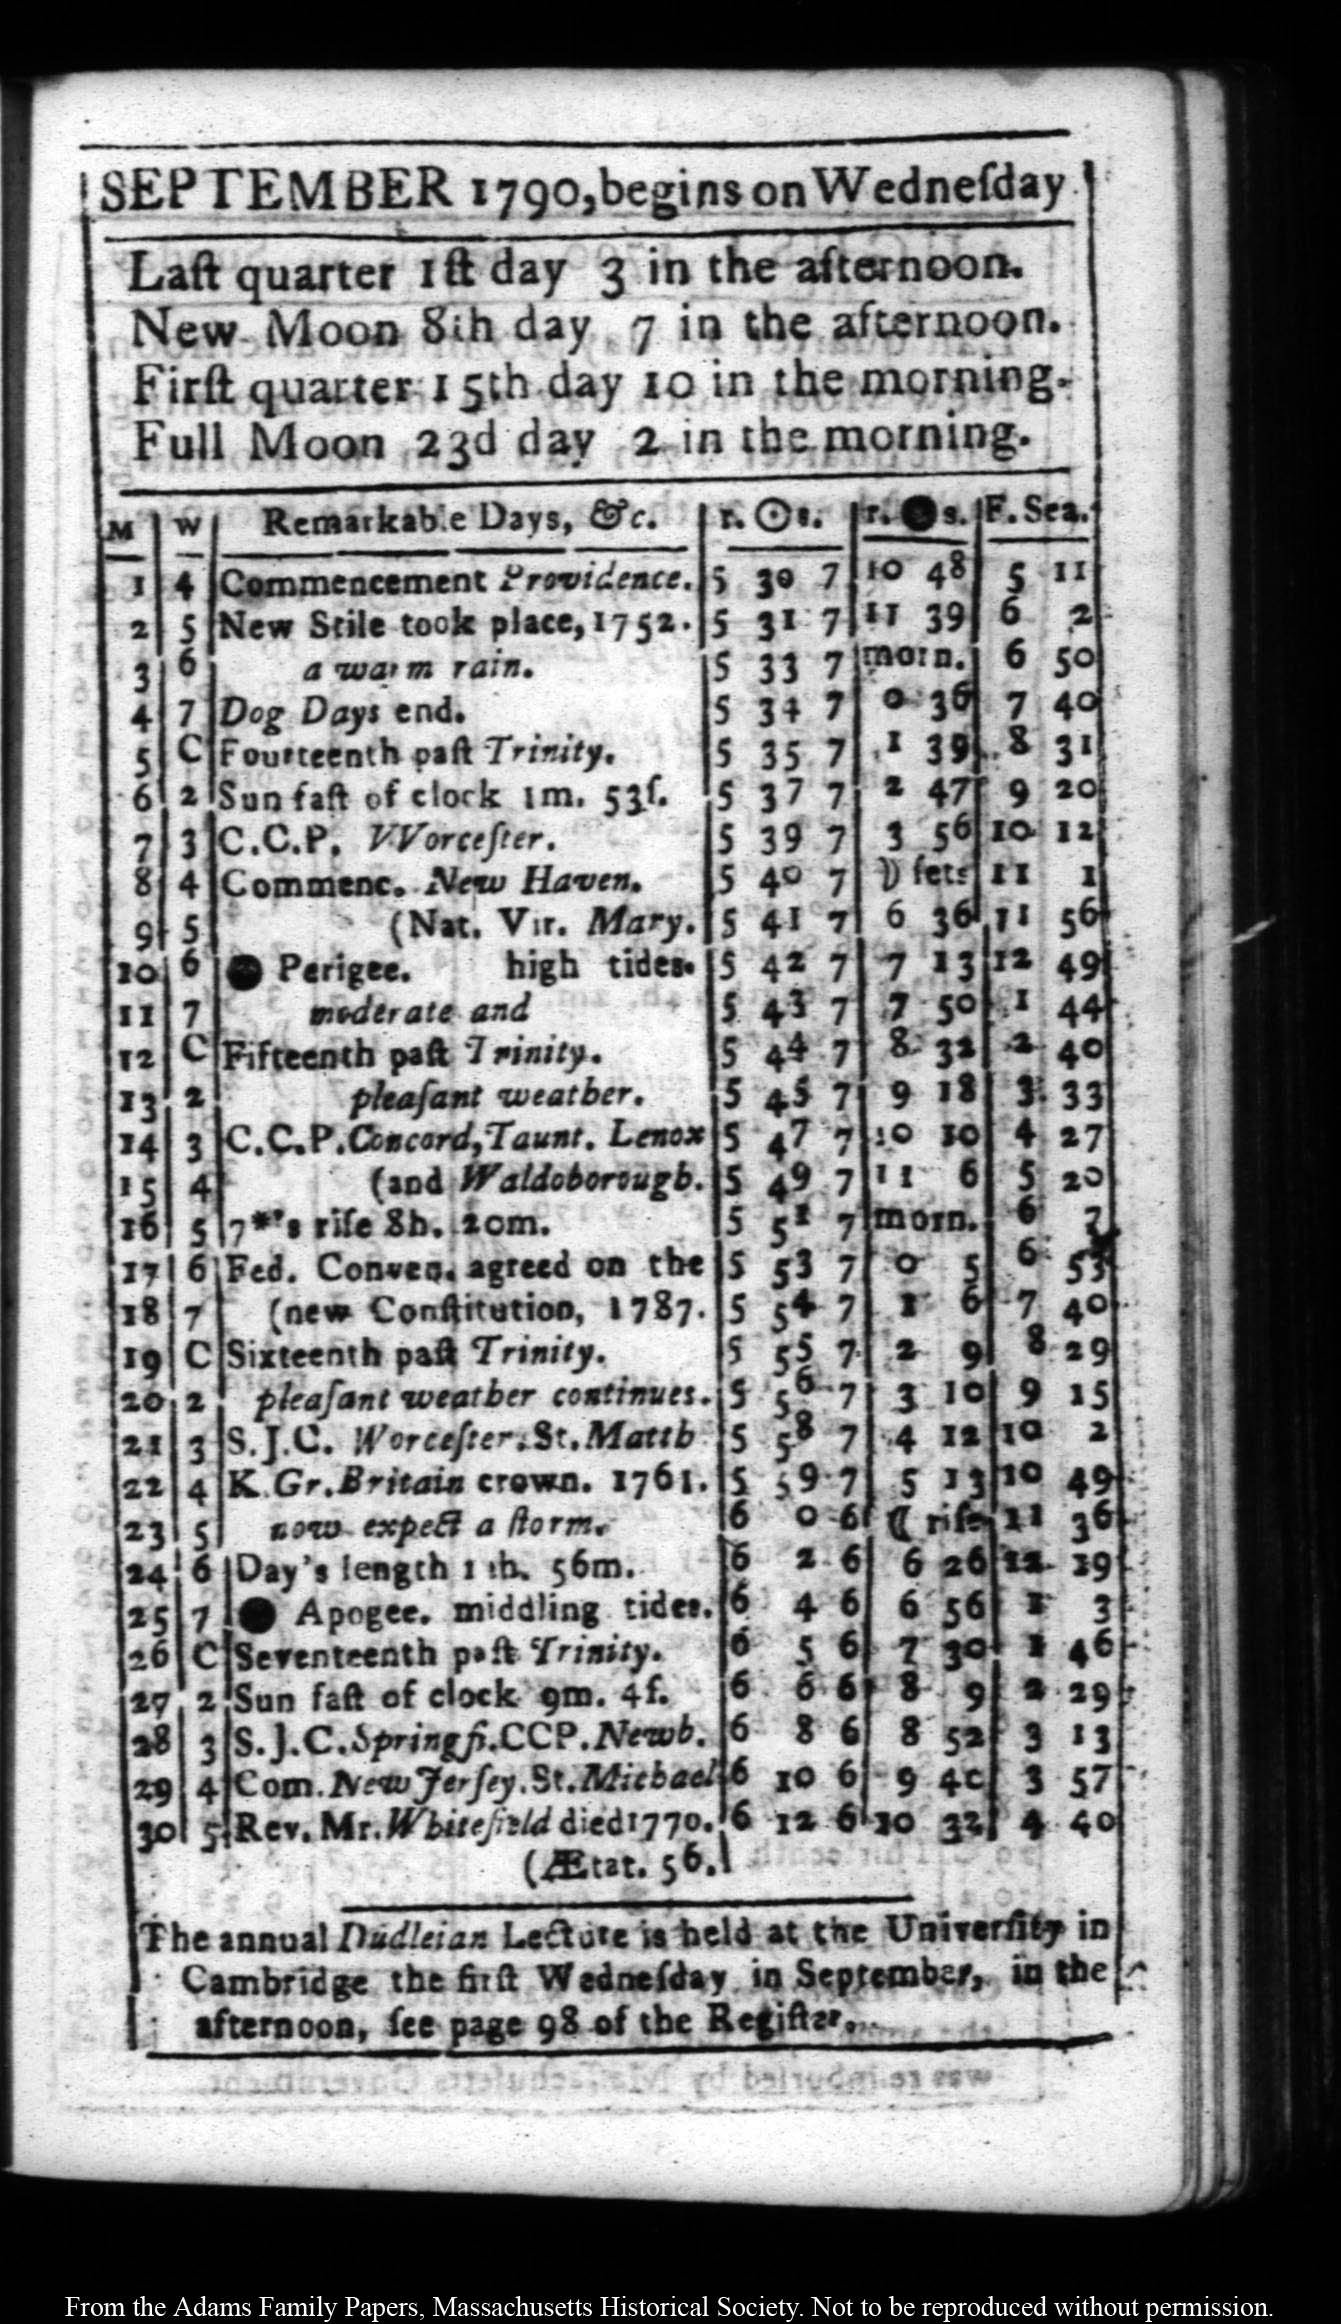 SEPTEMBER 1790, begins on Wedneſday
Laſt quarter 1ſt day 3 in the afternoon.
New Moon 8th day 7 in the afternoon.
Firſt quarter 15th day 10 in the morning.
Full Moon 23d day 2 in the morning.
M W Remarkable Days, &c. r. ☉ s. r. ● s. F. Sea.
1 4 Commencement Providence. 5 30 7 10 48 5 11
2 5 New Stile took place, 1752. 5 31 7 11 39 6 2
3 6 a warm rain. 5 33 7 morn. 6 50
4 7 Dog Days end. 5 34 7 0 36 7 40
5 C Fourteenth paſt Trinity. 5 35 7 1 39 8 31
6 2 Sun faſt of clock 1m. 53ſ. 5 37 7 2 47 9 20
7 3 C.C.P. VVorceſter. 5 39 7 3 56 10 12
8 4 Commenc. New Haven. 5 40 7 ☽ ſets 11 1
9 5 (Nat. Vir. Mary. 5 41 7 6 36 11 56
10 6 ● Perigee. high tides. 5 42 7 7 13 12 49
11 7 moderate and 5 43 7 7 50 1 44
12 C Fifteenth paſt Trinity. 5 44 7 8 32 2 40
13 2 pleaſant weather. 5 45 7 9 18 3 33
14 3 C.C.P. Concord, Taunt. Lenox 5 47 7 10 10 4 27
15 4 (and Waldoborough. 5 49 7 11 6 5 20
16 5 7*'s riſe 8h. 20m. 5 51 7 morn. 6 7
17 6 Fed. Conven. agreed on the 5 53 7 0 5 6 53
18 7 (new Conſtitution, 1787. 5 54 7 1 6 7 40
19 C Sixteenth paſt Trinity. 5 55 7 2 9 8 29
20 2 pleaſant weather continues. 5 56 7 3 10 9 15
21 3 S.J.C. Worceſter. St. Matth 5 58 7 4 12 10 2
22 4 K. Gr. Britain crown. 1761. 5 59 7 5 13 10 49
23 5 now expect a ſtorm. 6 0 6 ☾ riſe 11 36
24 6 Day's length 11h. 56m. 6 2 6 6 26 12 19
25 7 ● Apogee. middling tides. 6 4 6 6 56 1 3
26 C Seventeenth paſt Trinity. 6 5 6 7 30 1 46
27 2 Sun faſt of clock 9m. 4ſ. 6 6 6 8 9 2 29
28 3 S.J.C. Springfi. CCP. Newb. 6 8 6 8 52 3 13
29 4 Com. New Jerſey. St. Michael 6 10 6 9 40 3 57
30 5 Rev. Mr. Whitefield died 1770. 6 12 6 10 32 4 40
(Ætat. 56.
The annual Dudleian Lecture is held at the Univerſity in
Cambridge the firſt Wedneſday in September, in the
afternoon, ſee page 98 of the Regiſter.
From the Adams Family Papers, Massachusetts Historical Society. Not to be reproduced without permission.